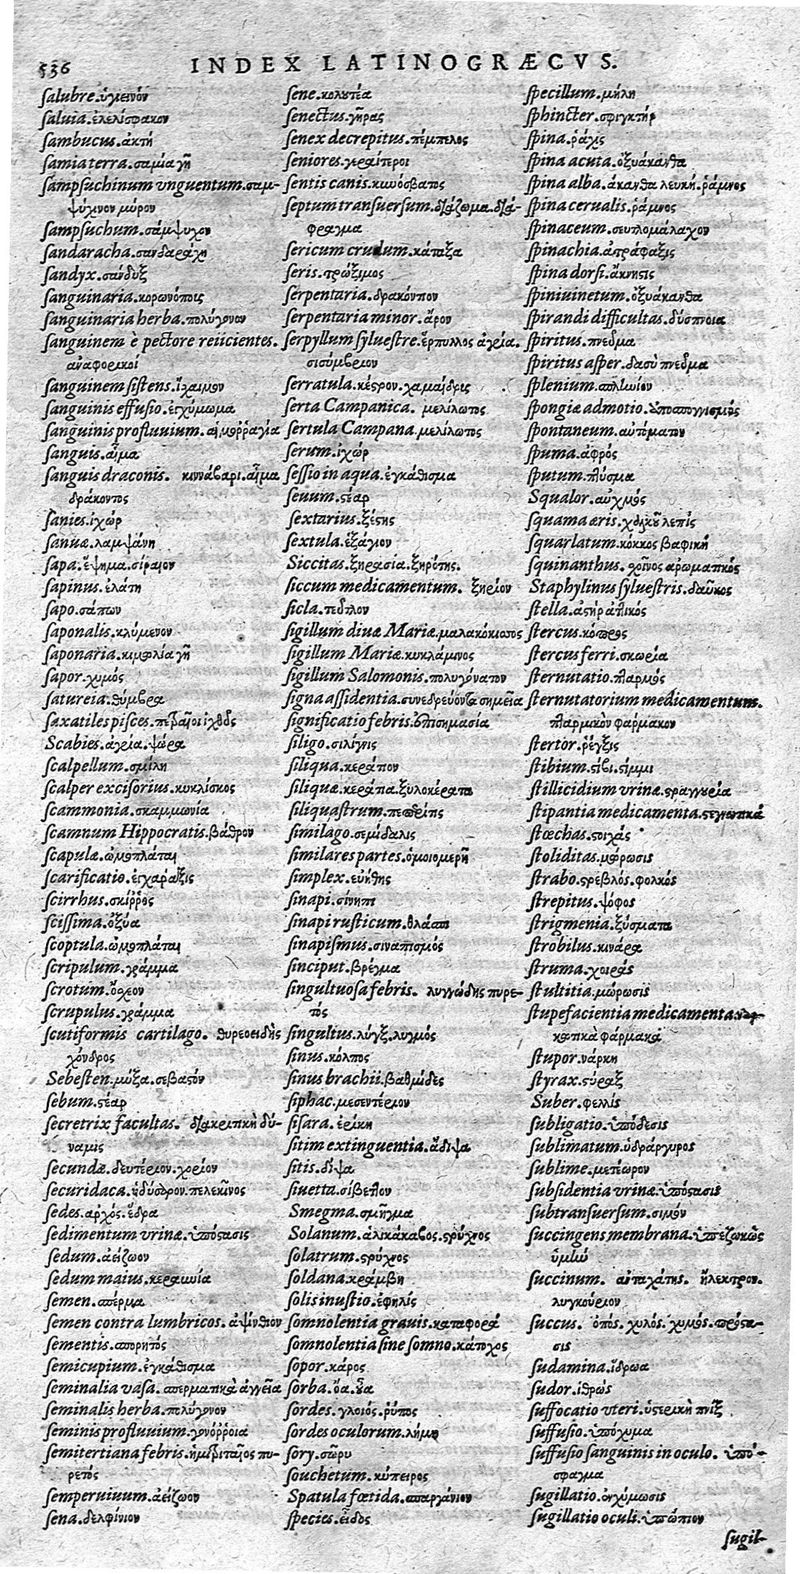 536 INDEX LATINOGRÆCVS.
ſalubre.ὑγιεινόν
ſaluia.ἐλελίσφακον
ſambucus.ἀκτή
ſamia terra.σαμία γῆ
ſampſuchinum vnguentum.σαμ-
ψύχινον μύρον
ſampſuchum.σάμψυχον
ſandaracha.σανδαράχη
ſandyx.σάνδυξ
ſanguinaria.κορωνόπους
ſanguinaria herba.πολύγονον
ſanguinem è pectore reiicientes.
ἀναφορικοί
ſanguinem ſiſtens.ἴχαιμον
ſanguinis effuſio.ἐκχύμωμα
ſanguinis profluuium.αἱμοῤῥαγία
ſanguis.αἷμα
ſanguis draconis. κιννάβαρι.αἷμα
δράκοντος
ſanies.ἰχώρ
ſanuæ.λαμψάνη
ſapa.ἕψημα.σίραιον
ſapinus.ἐλάτη
ſapo.σάπων
ſaponalis.κλύμενον
ſaponaria.κιμωλία γῆ
ſapor.χυμός
ſatureia.θύμβρα
ſaxatiles piſces.πετραῖοι ἰχθῦς
Scabies.ἀγρία.ψώρα
ſcalpellum.σμίλη
ſcalper exciſorius.κυκλίσκος
ſcammonia.σκαμμωνία
ſcamnum Hippocratis.βάθρον
ſcapulæ.ὠμοπλάται
ſcarificatio.ἐγχάραξις
ſcirrhus.σκίῤῥος
ſciſſima.ὀξύα
ſcoptula.ὠμοπλάται
ſcripulum.γράμμα
ſcrotum.ὄσχεον
ſcrupulus.γράμμα
ſcutiformis cartilago. θυρεοειδὴς
χόνδρος
Sebeſten.μύξα.σεβαστόν
ſebum.στέαρ
ſecretrix facultas. διακριτικὴ δύ-
ναμις
ſecundæ.δευτέριον.χορίον
ſecuridaca.ἡδύσαρον.πελεκῖνος
ſedes.ἀρχός.ἕδρα
ſedimentum vrinæ.ὑπόστασις
ſedum.ἀείζωον
ſedum maius.κεραυνία
ſemen.σπέρμα
ſemen contra lumbricos.ἀψίνθιον
ſementis.σπορητός
ſemicupium.ἐγκάθισμα
ſeminalia vaſa.σπερματικὰ ἀγγεῖα
ſeminalis herba.πολύγονον
ſeminis profluuium.γονόῤῥοια
ſemitertiana febris.ἡμιτριταῖος πυ-
ρετός
ſemperuiuum.ἀείζωον
ſena.δελφίνιον
ſene.κολυτέα
ſenectus.γῆρας
ſenex decrepitus.πέμπελος
ſeniores.γεραίτεροι
ſentis canis.κυνόσβατος
ſeptum tranſuerſum.διάζωμα.διά-
φραγμα
ſericum crudum.κάταξα
ſeris.τρώξιμος
ſerpentaria.δρακόντιον
ſerpentaria minor.ἄρον
ſerpyllum ſylueſtre.ἕρπυλλος ἀγρία.
σισύμβριον
ſerratula.κέστρον.χαμαίδρις
ſerta Campanica. μελίλωτος
ſertula Campana.μελίλωτος
ſerum.ἰχώρ
ſeſſio in aqua.ἐγκάθισμα
ſeuum.στέαρ
ſextarius.ξέστης
ſextula.ἑξάγιον
Siccitas.ξηρασία.ξηρότης.
ſiccum medicamentum. ξηρίον
ſicla.τεῦτλον
ſigillum diuæ Mariæ.μαλακόκισσος
ſigillum Mariæ.κυκλάμινος
ſigillum Salomonis.πολυγόνατον
ſigna aſſidentia.συνεδρεύοντα σημεῖα
ſignificatio febris.ἐπισημασία
ſiligo.σιλίγνις
ſiliqua.κεράτιον
ſiliquæ.κεράτια.ξυλοκέρατα
ſiliquaſtrum.πεπερῖτις
ſimilago.σεμίδαλις
ſimilares partes.ὁμοιομερῆ
ſimplex.εὐήθης
ſinapi.σίνηπι
ſinapi ruſticum.θλάσπι
ſinapiſmus.σιναπισμός
ſinciput.βρέγμα
ſingultuoſa febris. λυγγώδης πυρε-
τός
ſingultus.λύγξ.λυγμός
ſinus.κόλπος
ſinus brachii.βαθμίδες
ſiphac.μεσεντέριον
ſiſara.ἐρίκη
ſitim extinguentia.ἄδιψα
ſitis.δίψα
ſiuetta.σίβετλον
Smegma.σμῆγμα
Solanum.ἁλικάκαβος.στρύχνος
ſolatrum.στρύχνος
ſoldana.κράμβη
ſolis inuſtio.ἐφηλίς
ſomnolentia grauis.καταφορά
ſomnolentia ſine ſomno.κάτοχος
ſopor.κάρος
ſorba.ὄα.οὖα
ſordes.γλοιός.ῥύπος
ſordes oculorum.λήμη
ſory.σῶρυ
ſouchetum.κύπειρος
Spatula fœtida.σπαργάνιον
ſpecies.εἶδος
ſpecillum.μήλη
ſphincter.σφιγκτήρ
ſpina.ῥάχις
ſpina acuta.ὀξυάκανθα
ſpina alba.ἄκανθα λευκή.ῥάμνος
ſpina cerualis.ῥάμνος
ſpinaceum.σευτλομάλαχον
ſpinachia.ἀτράφαξις
ſpina dorſi.ἄκνηστις
ſpiniuinetum.ὀξυάκανθα
ſpirandi difficultas.δύσπνοια
ſpiritus.πνεῦμα
ſpiritus aſper.δασὺ πνεῦμα
ſplenium.σπλήνιον
ſpongiæ admotio.ὑποσπογγισμός
ſpontaneum.αὐτόματον
ſpuma.ἀφρός
ſputum.πτύσμα
Squalor.αὐχμός
ſquama æris.χαλκοῦ λεπίς
ſquarlatum.κόκκος βαφική
ſquinanthus.σχοῖνος ἀρωματικός
Staphylinus ſylueſtris.δαῦκος
ſtella.ἀστὴρ ἀττικός
ſtercus.κόπρος
ſtercus ferri.σκωρία
ſternutatio.πταρμός
ſternutatorium medicamentum.
πταρμικὸν φάρμακον
ſtertor.ῥέγξις
ſtibium.στίβι.στίμμι
ſtillicidium vrinæ.στραγγουρία
ſtipantia medicamenta.στεγνωτικά
ſtœchas.στοιχάς
ſtoliditas.μώρωσις
ſtrabo.στρεβλός.φολκός
ſtrepitus.ψόφος
ſtrigmenia.ξύσματα
ſtrobilus.κινάρα
ſtruma.χοιράς
ſtultitia.μώρωσις
ſtupefacientia medicamenta.ναρ-
κωτικὰ φάρμακα
ſtupor.νάρκη
ſtyrax.στύραξ
Suber.φελλίς
ſubligatio.ὑπόδεσις
ſublimatum.ὑδράργυρος
ſublime.μετέωρον
ſubſidentia vrinæ.ὑπόστασις
ſubtranſuerſum.σιμόν
ſuccingens membrana.ὑπεζωκὼς
ὑμήν
ſuccinum. αὐταχάτης. ἤλεκτρον.
λυγκούριον
ſuccus. ὀπός. χυλός. χυμός. πρόστα-
σις
ſudamina.ἵδρωα
ſudor.ἱδρώς
ſuffocatio vteri.ὑστερικὴ πνίξ
ſuffuſio.ὑπόχυμα
ſuffuſio ſanguinis in oculo. ὑπό-
σφαγμα
ſugillatio.ἐκχύμωσις
ſugillatio oculi.ὑπώπιον
ſugil-